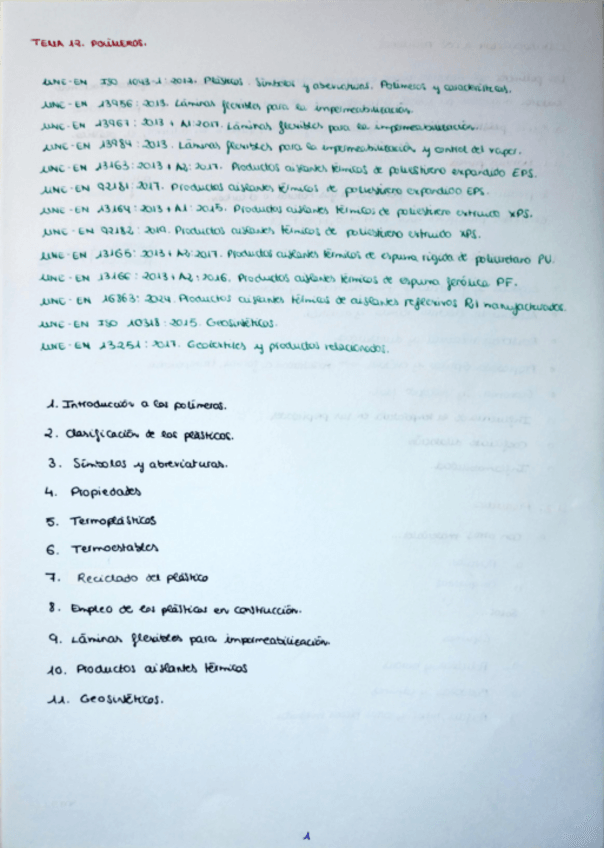 TEMA 12. POLÍMEROS.
UNE-EN ISO 1043-1:2012. Plásticos. Símbolos y abreviaturas. Polímeros y características.
UNE-EN 13956:2013. Láminas flexibles para la impermeabilización.
UNE-EN 13967:2013 + A1:2017. Láminas flexibles para la impermeabilización.
UNE-EN 13984:2013. Láminas flexibles para la impermeabilización y control del vapor.
UNE-EN 13163:2013 + A2:2017. Productos aislantes térmicos de poliestireno expandido EPS.
UNE-EN 92181:2017. Productos aislantes térmicos de poliestireno expandido EPS.
UNE-EN 13164:2013 + A1:2015. Productos aislantes térmicos de poliestireno extruido XPS.
UNE-EN 92182:2019. Productos aislantes térmicos de poliestireno extruido XPS.
UNE-EN 13165:2013 + A2:2017. Productos aislantes térmicos de espuma rígida de poliuretano PU.
UNE-EN 13166:2013 + A2:2016. Productos aislantes térmicos de espuma fenólica PF.
UNE-EN 16863:2024. Productos aislantes térmicos de aislantes reflexivos RI manufacturados.
UNE-EN ISO 10318:2015. Geosintéticos.
UNE-EN 13251:2017. Geotextiles y productos relacionados.
1. Introducción a los polímeros.
2. Clasificación de los plásticos.
3. Símbolos y abreviaturas.
4. Propiedades
5. Termoplásticos
6. Termoestables
7. Reciclado del plástico
8. Empleo de los plásticos en construcción.
9. Láminas flexibles para impermeabilización.
10. Productos aislantes térmicos
11. Geosintéticos.
1